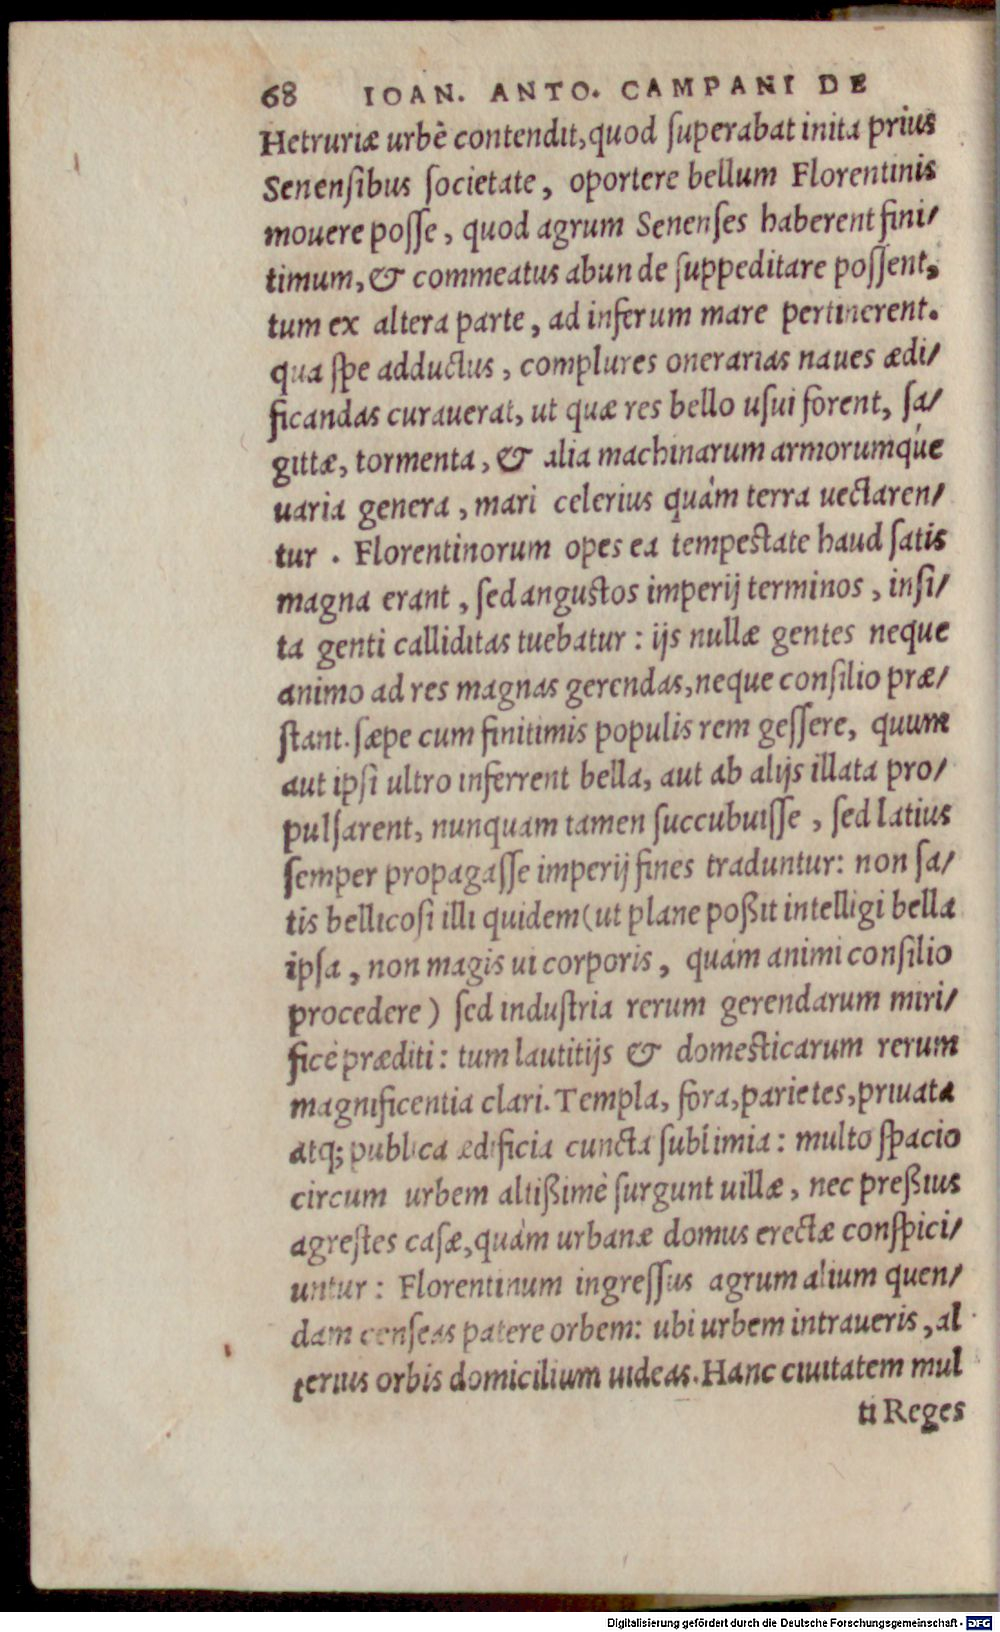 68 IOAN. ANTO. CAMPANI DE
Hetruriæ urbẽ contendit, quod ſuperabat inita prius
Senenſibus ſocietate, oportere bellum Florentinis
mouere poſſe, quod agrum Senenſes haberent fini/
timum, & commeatus abunde ſuppeditare poſſent,
tum ex altera parte, ad inferum mare pertinerent.
qua ſpe adductus, complures onerarias naues ædi/
ficandas curauerat, ut quæ res bello uſui forent, ſa/
gittæ, tormenta, & alia machinarum armorumq́ue
uaria genera, mari celerius quàm terra uectaren/
tur. Florentinorum opes ea tempeſtate haud ſatis
magna erant, ſed anguſtos imperij terminos, inſi/
ta genti calliditas tuebatur: ijs nullæ gentes neque
animo ad res magnas gerendas, neque conſilio præ/
ſtant. ſæpe cum finitimis populis rem geſſere, quum
aut ipſi ultro inferrent bella, aut ab alijs illata pro/
pulſarent, nunquam tamen ſuccubuiſſe, ſed latius
ſemper propagaſſe imperij fines traduntur: non ſa/
tis bellicoſi illi quidem (ut plane poßit intelligi bella
ipſa, non magis ui corporis, quàm animi conſilio
procedere) ſed induſtria rerum gerendarum miri/
ficè præditi: tum lautitijs & domeſticarum rerum
magnificentia clari. Templa, fora, parietes, priuata
atq; publica ædificia cuncta ſublimia: multo ſpacio
circum urbem altißimè ſurgunt uillæ, nec preßius
agreſtes caſæ, quàm urbanæ domus erectæ conſpici/
untur: Florentinum ingreſſus agrum alium quen/
dam cenſeas patere orbem: ubi urbem intraueris, al
terius orbis domicilium uideas. Hanc ciuitatem mul
ti Reges
Digitalisierung gefördert durch die Deutsche Forschungsgemeinschaft - DFG